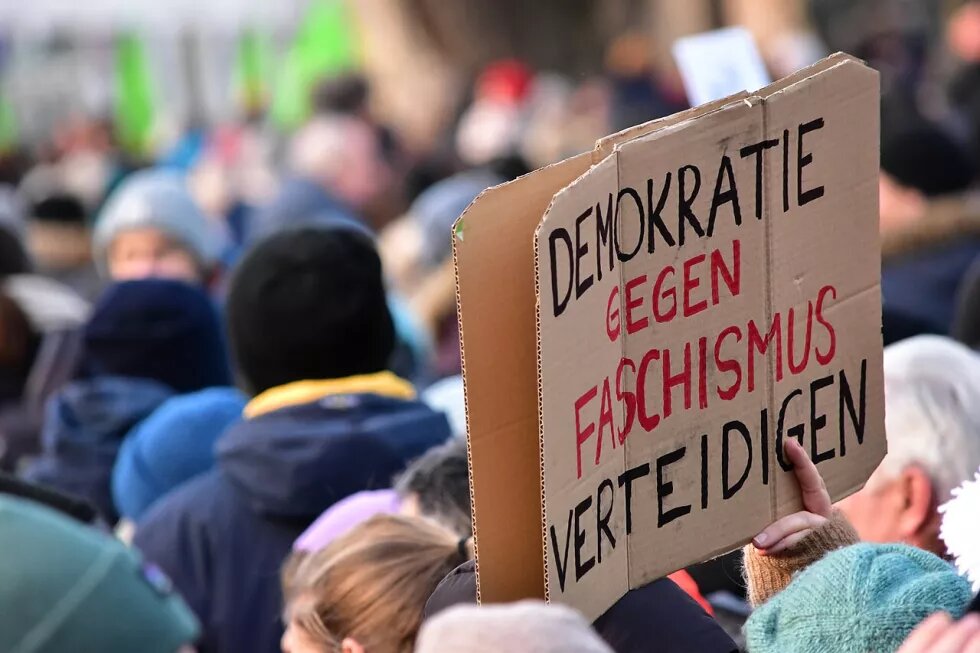 DEMOKRATIE
GEGEN
FASCHISMUS
VERTEIDIGEN